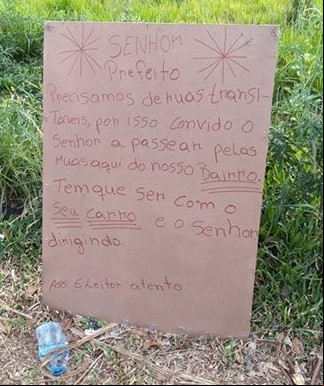 SENHOR
Prefeito
Precisamos de ruas transi-
taveis, por isso convido o
Senhor a passear pelas
ruas aqui do nosso Bairro.
Tem que ser com o
Seu carro e o Senhor
dirigindo.
Ass. Eleitor atento